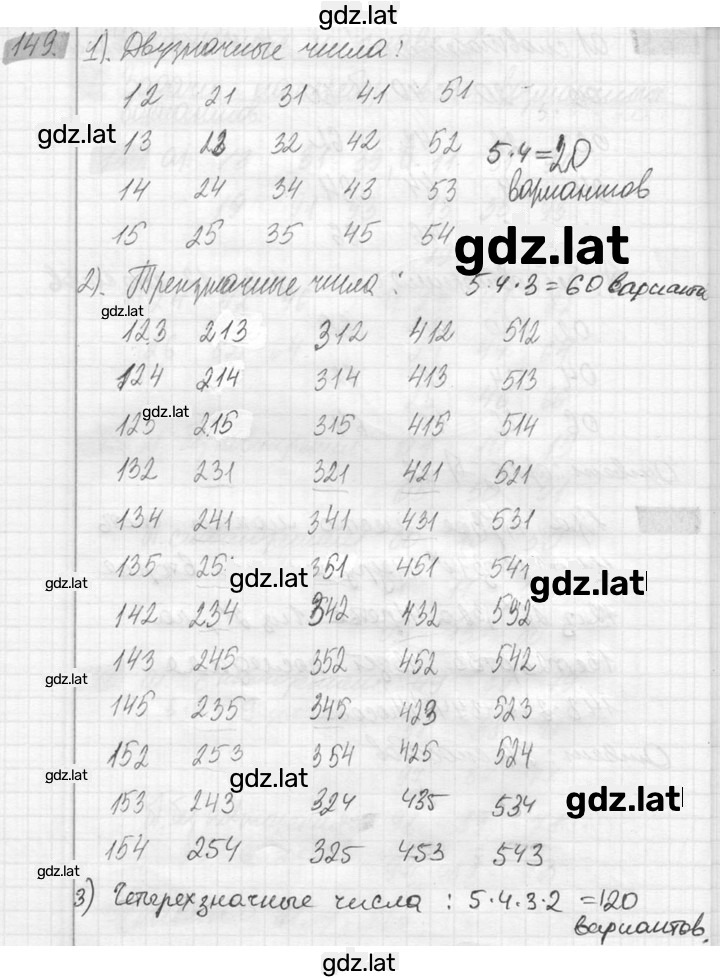 gdz.lat
149. 1). Двузначные числа:
12 21 31 41 51
gdz.lat
13 23 32 42 52 5·4=20
14 24 34 43 53 вариантов
15 25 35 45 54
gdz.lat
2). Трехзначные числа: 5·4·3=60 варианта
gdz.lat
123 213 312 412 512
124 214 314 413 513
gdz.lat
125 215 315 415 514
132 231 321 421 521
134 241 341 431 531
135 25 351 451 541
gdz.lat gdz.lat gdz.lat
142 234 342 432 532
143 245 352 452 542
gdz.lat
145 235 345 423 523
152 253 354 425 524
gdz.lat gdz.lat gdz.lat
153 243 324 435 534
154 254 325 453 543
gdz.lat
3) Четырехзначные числа: 5·4·3·2=120
вариантов.
gdz.lat